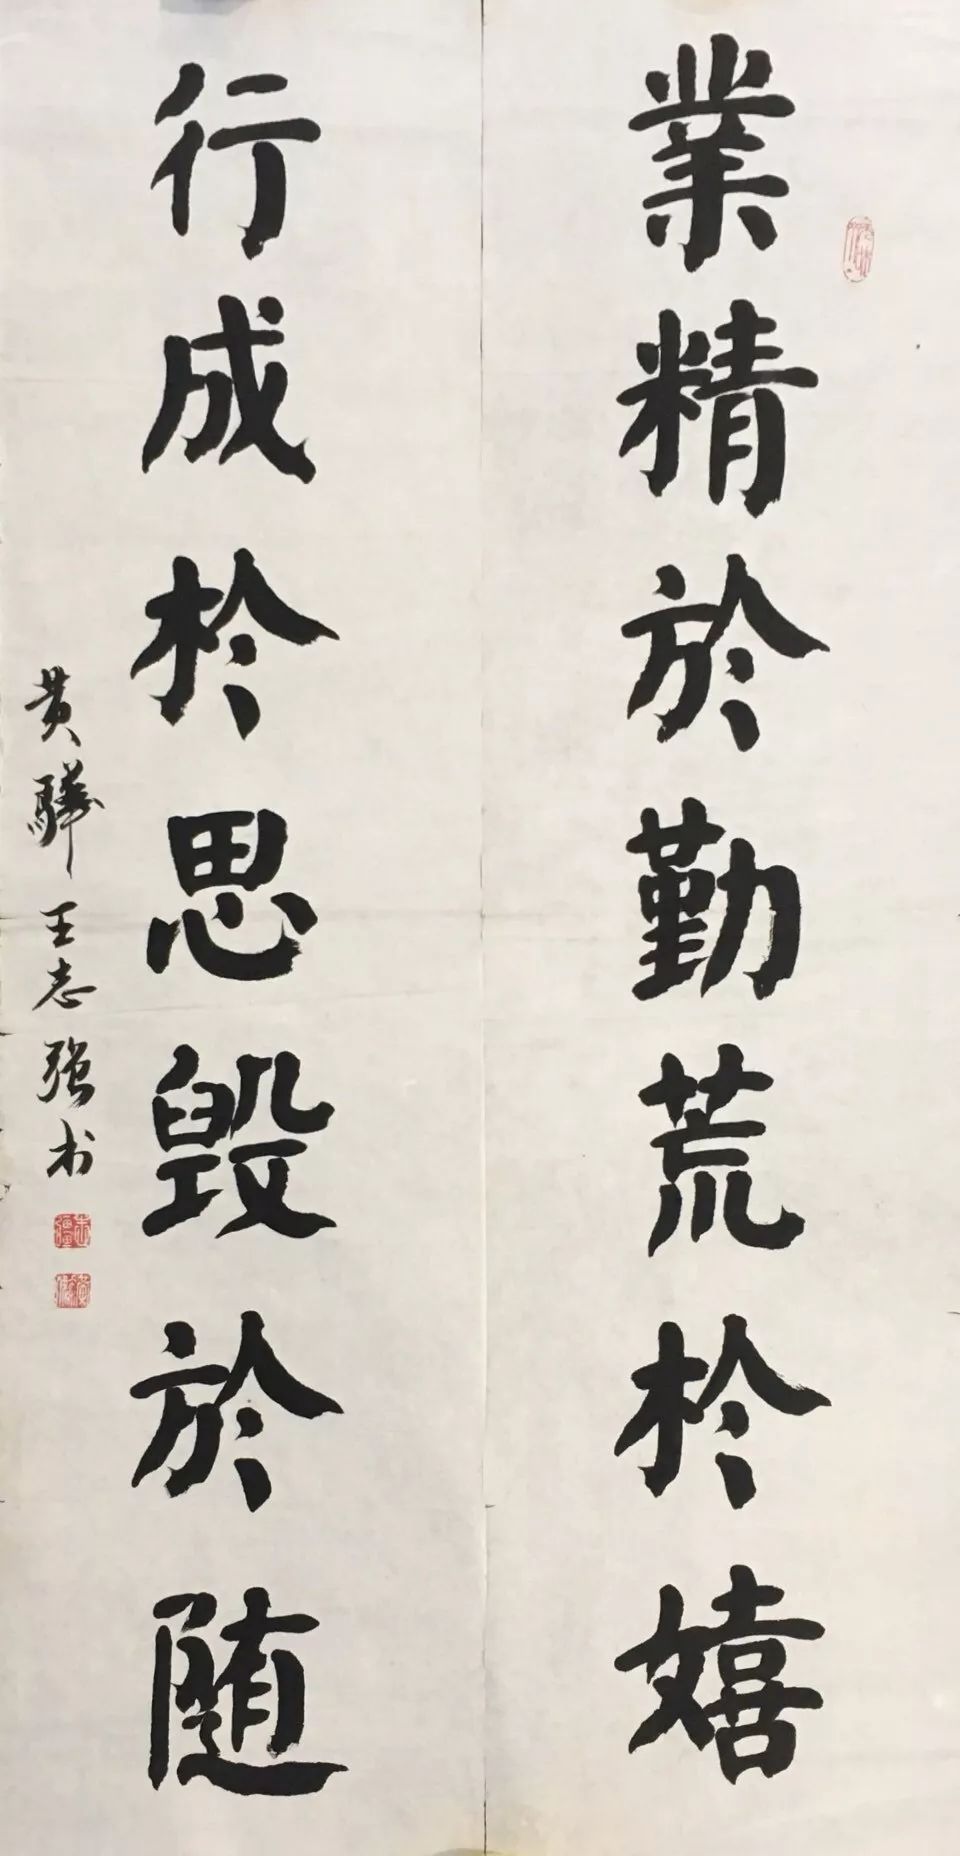 業精於勤荒於嬉
行成於思毀於随
黄驊王志强书